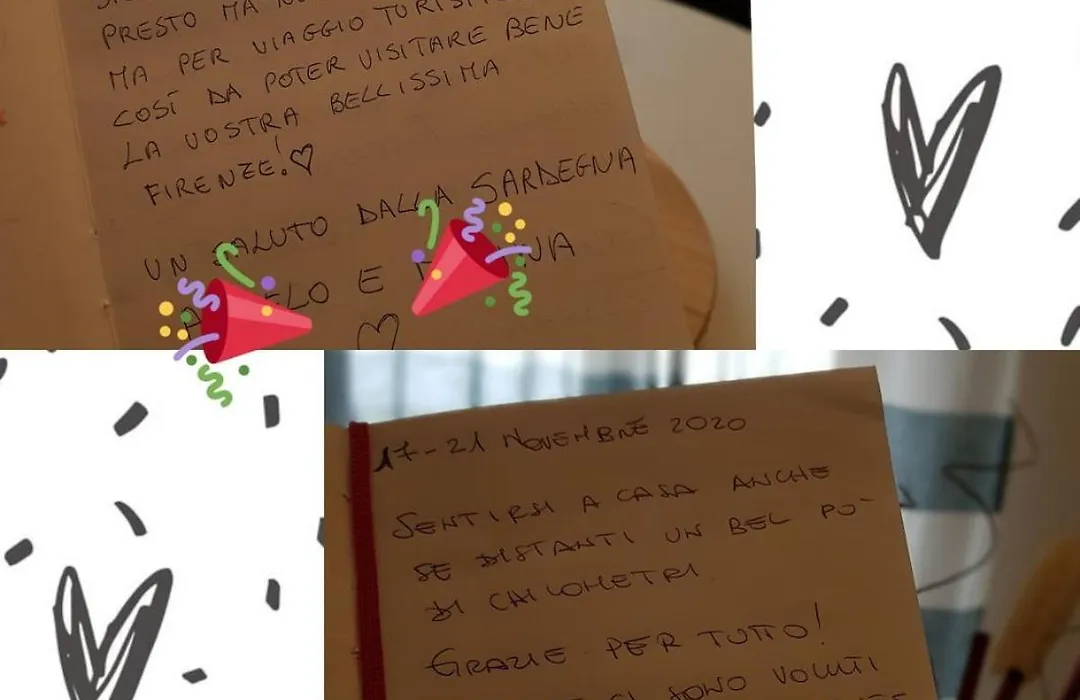 PRESTO MA
MA PER VIAGGIO
COSÍ DA POTER VISITARE BENE
LA VOSTRA BELLISSIMA
FIRENZE!♡
UN SALUTO DALLA SARDEGNA
E
♡
17-21 NOVEMBRE 2020
SENTIRSI A CASA ANCHE
SE DISTANTI UN BEL PO'
DI CHILOMETRI
GRAZIE PER TUTTO!
CI SONO VOLUTI